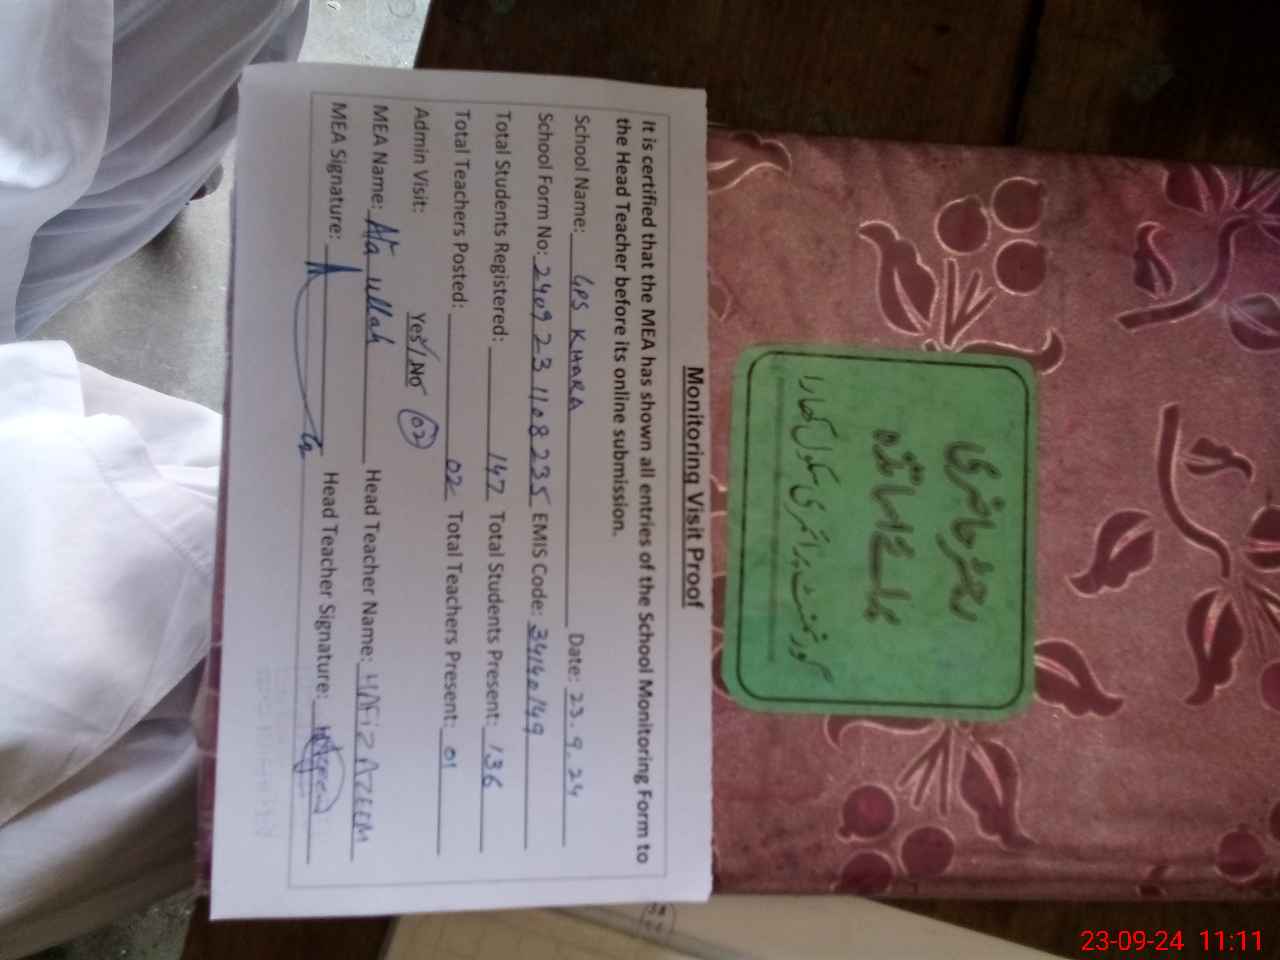 Monitoring Visit Proof
It is certified that the MEA has shown all entries of the School Monitoring Form to
the Head Teacher before its online submission.
School Name: GPS KHARA Date: 23.9.24
School Form No: 2409231108235 EMIS Code: 34140149
Total Students Registered: 147 Total Students Present: 136
Total Teachers Posted: 02 Total Teachers Present: 01
Admin Visit: Yes/No 02
MEA Name: Ata ullah Head Teacher Name: HAFiZ AZEEM
MEA Signature: Head Teacher Signature:
رجسٹر حاضری
عملہ اساتذہ
گورنمنٹ پرائمری سکول کھارا
23-09-24 11:11